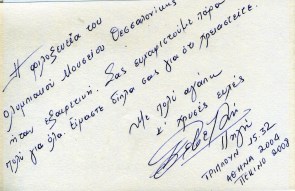 Η φιλοξενία του
Ολυμπιακού Μουσείου Θεσσαλονίκης
ήταν εξαιρετική. Σας ευχαριστούμε πάρα
πολύ για όλα. Είμαστε δίπλα σας για ότι χρειαστείτε.
Με πολύ αγάπη
κ' χρυσές ευχές
Πηγή
ΤΡΙΠΛΟΥΝ 15.32
ΑΘΗΝΑ 2004
ΠΕΚΙΝΟ 2008